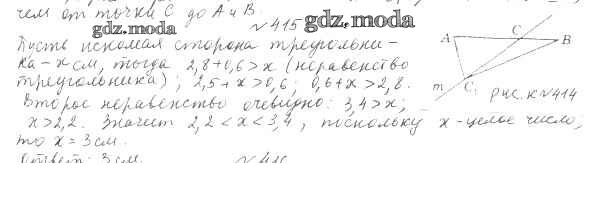 чем от точки C до A и B.
gdz.moda
№ 415
gdz.moda
Пусть искомая сторона треугольни-
ка - x см, тогда 2,8+0,6 > x (неравенство
треугольника); 2,5+x > 0,6; 0,6+x > 2,8.
Второе неравенство очевидно: 3,4 > x;
x > 2,2. Значит 2,2 < x < 3,4, поскольку x - целое число;
то x = 3 см.
Ответ: 3 см.
A
C
B
m
C₁
рис. к № 414